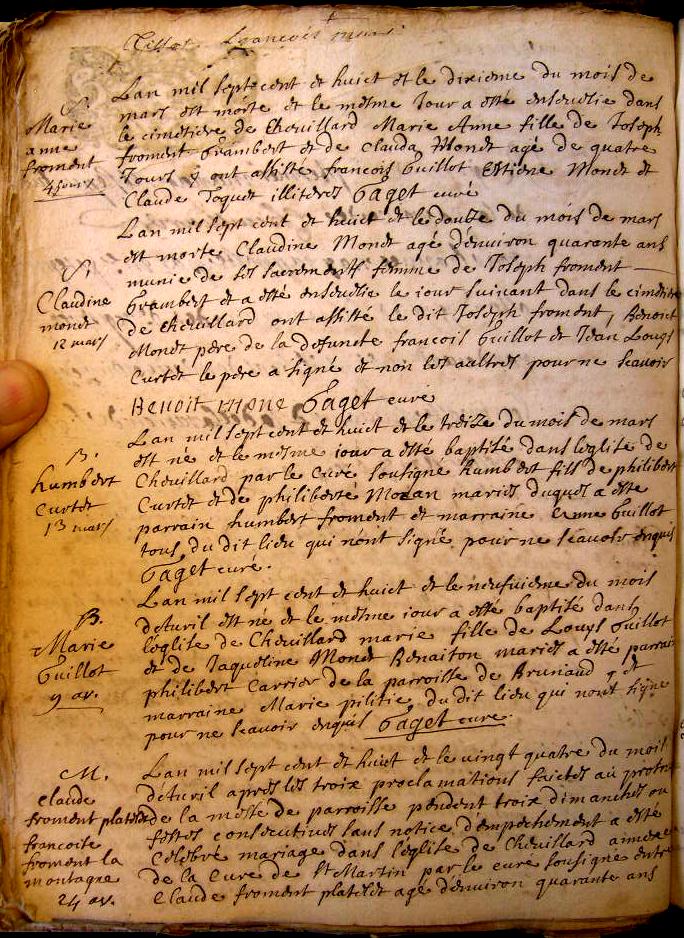 François
Lan mil sept cent et huict et le dixieme du mois de
mars est morte et le mesme Jour a esté enseuelie dans
le cimetiere de Cheuillard Marie Anne fille de Joseph
froment Grambert et de Clauda Monet agé de quatre
Jours y ont assisté francois Guillot Estiene Monet et
Claude Joquet illiterés Gaget curé
S.
Marie
anne
froment
4 jours
Lan mil sept cent et huict et le douze du mois de mars
est morte Claudine Monet agé denuiron quarante ans
munie de ses sacrements femme de Joseph froment
Grambert et a esté enseuelie le iour suiuant dans le cimetiere
de Cheuillard ont assisté le dit Joseph froment, Benoit
Monet pere de la defuncte francois Guillot et Jean Louys
Curtet le pere a signé et non les aultres pour ne scauoir
Benoit mone Gaget curé
S.
Claudine
monet
12 mars
Lan mil sept cent et huict et le treize du mois de mars
est né et le mesme iour a esté baptisé dans leglise de
Cheuillard par le curé sousigné humbert fils de philibert
Curtet et de philiberte Mozan mariés duquel a esté
parrain humbert froment et marraine Anne Guillot
tous du dit lieu qui nont signé pour ne scauoir enquis
Gaget curé.
B.
humbert
curtet
13 mars
Lan mil sept cent et huict et le neufuieme du mois
dauril est né et le mesme iour a esté baptisé dans
leglise de Cheuillard marie fille de Louys Guillot
et de Jaqueline Monet Benaiton mariés a esté parrain
philibert Carrier de la parroisse de Brunaud et
marraine Marie pilitie du dit lieu qui nont signé
pour ne scauoir enquis Gaget curé.
B.
Marie
Guillot
9 av.
Lan mil sept cent et huict et le vingt quatre du mois
dauril apres les troix proclamations faictes au
de la messe de parroisse pendent troix dimanches ou
festes consecutiues sans notice dempechement a esté
celebré mariage dans leglise de Cheuillard annexe
de la Cure de St Martin par le curé sousigné entre
Claude froment platilet agé denuiron quarante ans
M.
claude
froment platilet
francoise
froment la
montagne
24 av.